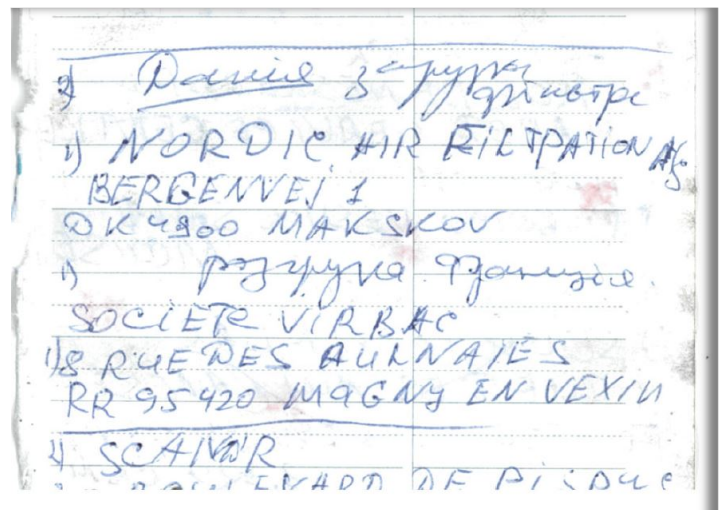 2) Данія загрузка
фільтри
1) NORDIC AIR FILTPATION A/S
BERGENVEJ 1
DK 4900 MAKSKOV
1) розгрузка Франція.
SOCIETE VIRBAC
1) 8 RUE DES AULNAIES
RR 95420 MAGNY EN VEXIN
2) SCAIVOR
BOULEVARD DE